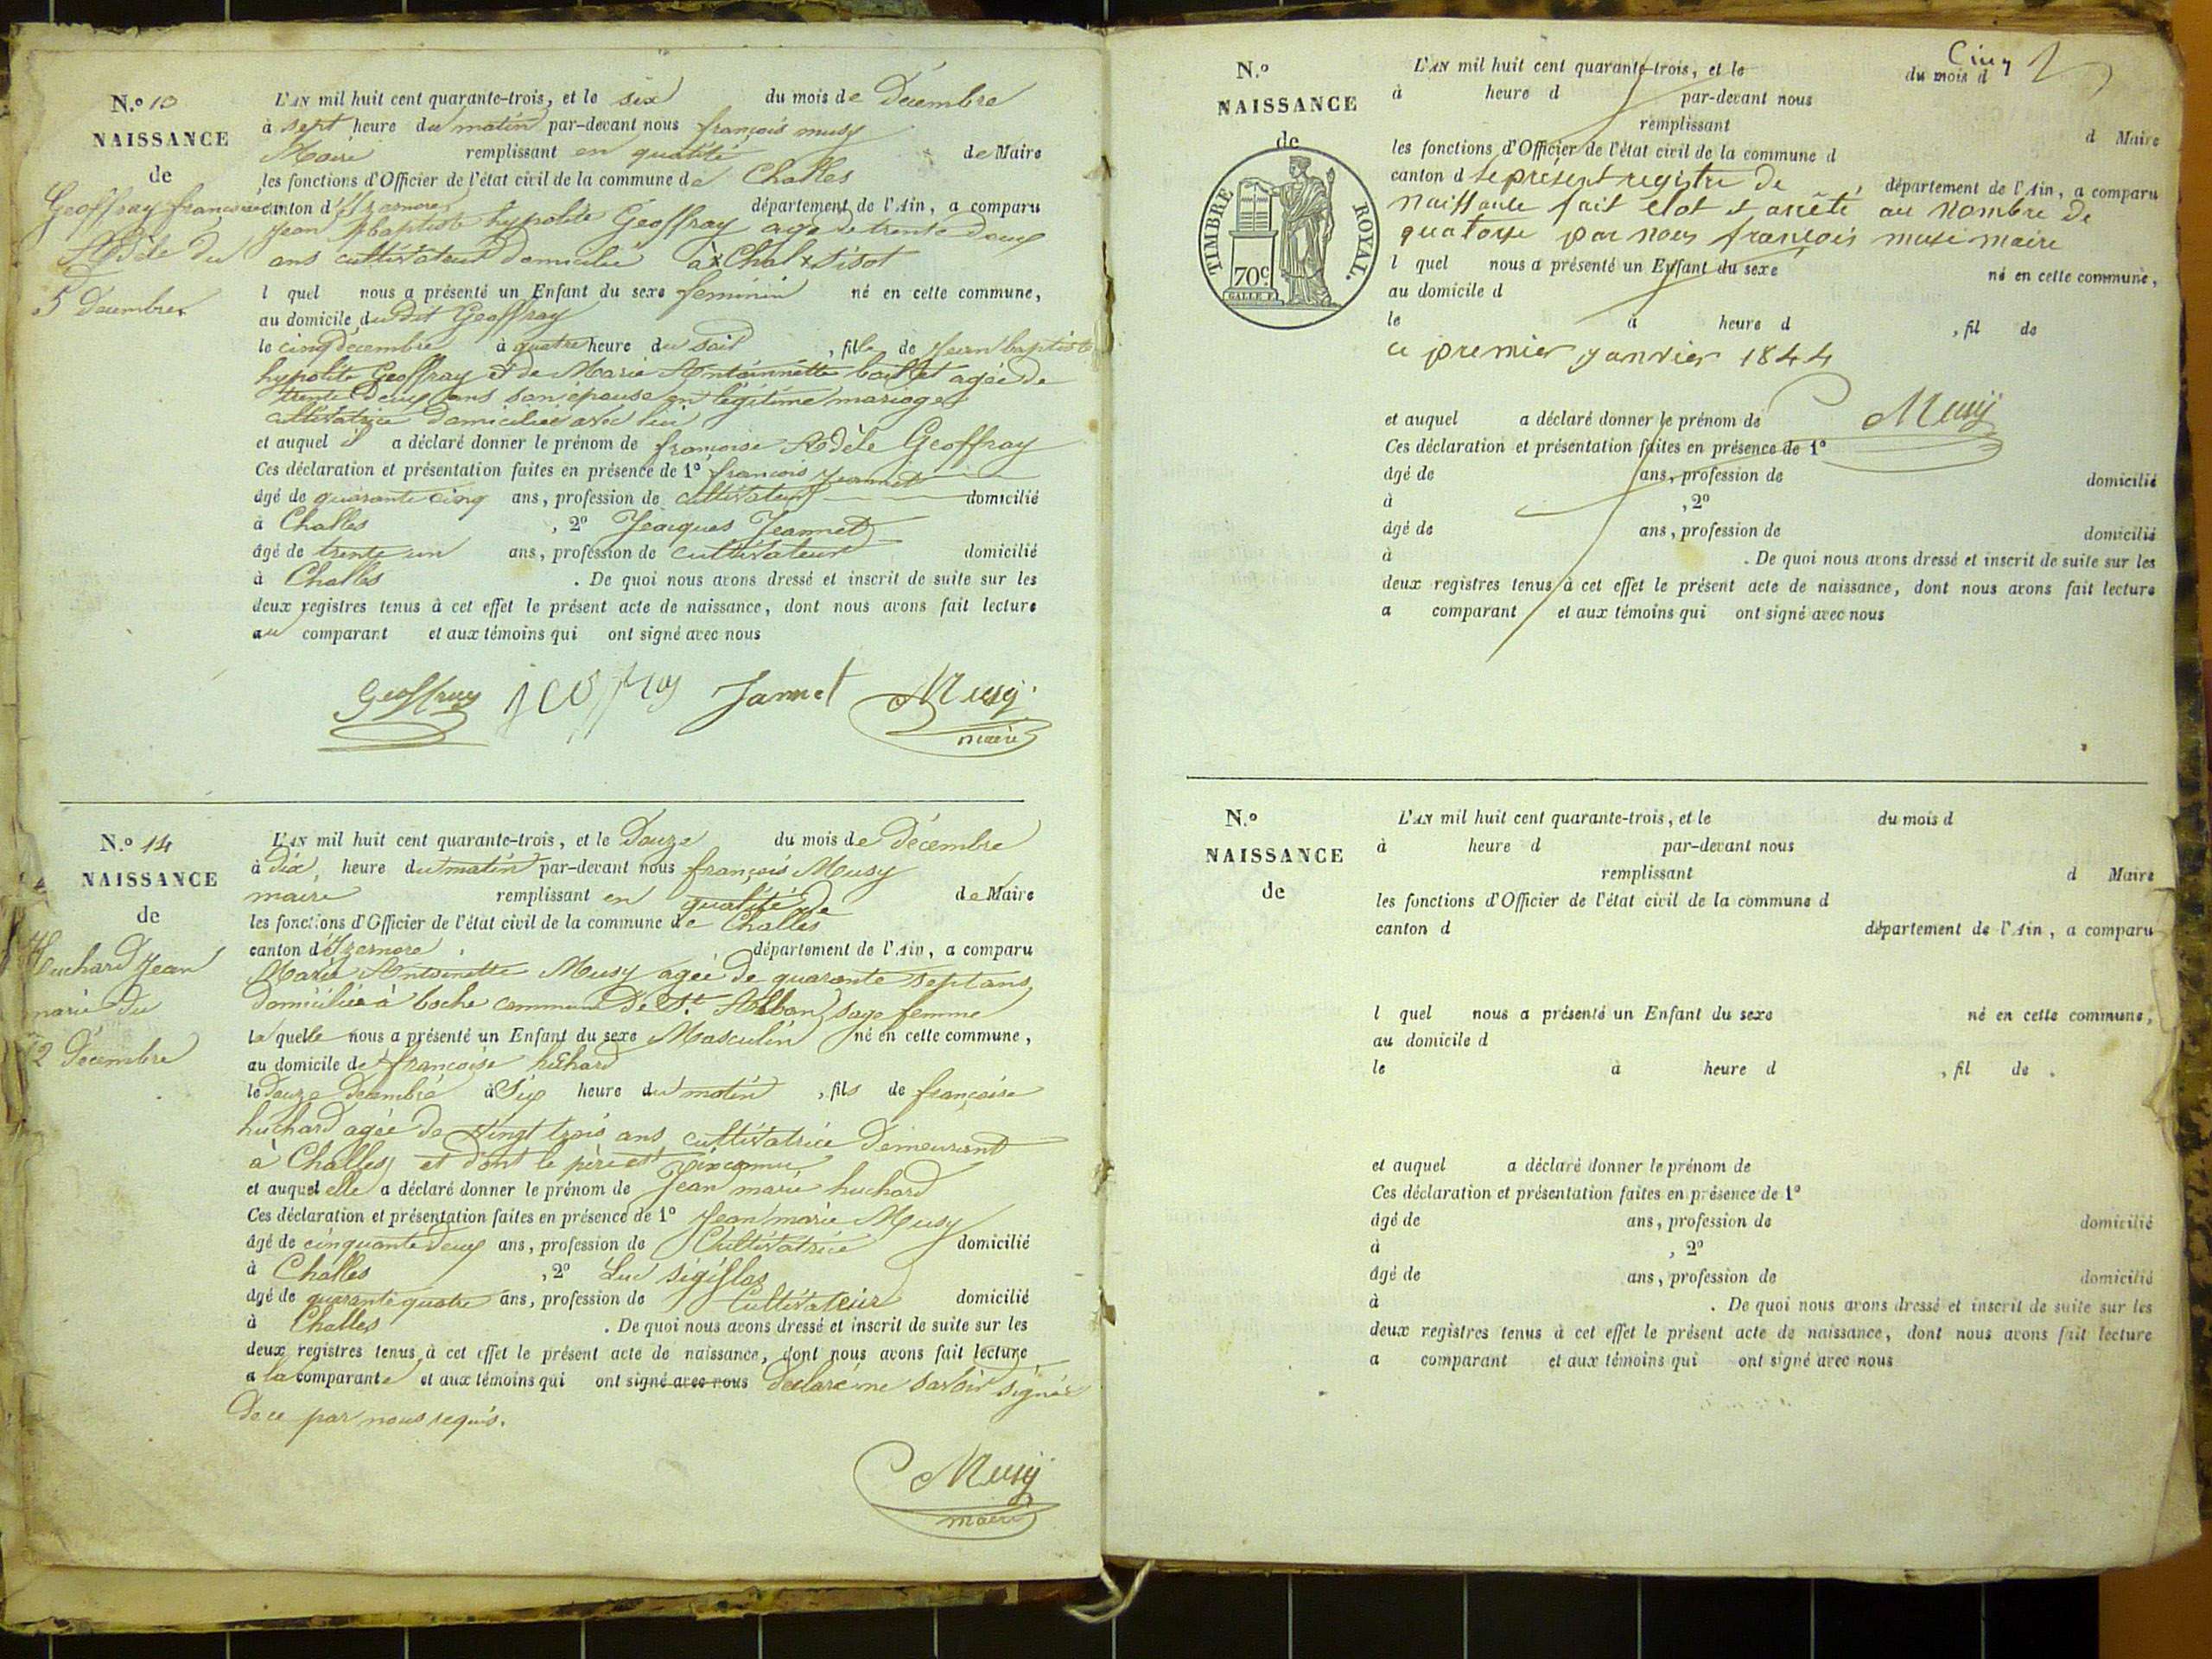 N.º 13
NAISSANCE
de
Geoffray françoise
Adèle du
5 Décembre
L'AN mil huit cent quarante-trois, et le six du mois de Décembre
à sept heure du matin par-devant nous françois musy
Maire remplissant en qualité de Maire
les fonctions d'Officier de l'état civil de la commune de Challes
canton d'Izernore département de l'Ain, a comparu
Jean Baptiste hypolite Geoffray agé de trente deux
ans cultivateur domicilié à
l quel nous a présenté un Enfant du sexe feminin né en cette commune,
au domicile du dit Geoffray
le cinq decembre à quatre heure du soir, fille de Jean baptiste
hypolite Geoffray et de Marie Antoinnette agée de
trente deux ans son épouse en légitime mariage
cultivatrice domiciliée avec lui
et auquel il a déclaré donner le prénom de françoise Adèle Geoffray
Ces déclaration et présentation faites en présence de 1º françois Jeannet
âgé de quarante cinq ans, profession de cultivateur domicilié
à Challes, 2º Jacques Jeannet
âgé de trente un ans, profession de cultivateur domicilié
à Challes. De quoi nous avons dressé et inscrit de suite sur les
deux registres tenus à cet effet le présent acte de naissance, dont nous avons fait lecture
au comparant et aux témoins qui ont signé avec nous
Geoffray Jannet Musy
maire
N.º 14
NAISSANCE
de
Huchard Jean
marie du
12 Décembre
L'AN mil huit cent quarante-trois, et le Douze du mois de Décembre
à dix heure du matin par-devant nous françois Musy
maire remplissant en qualité de de Maire
les fonctions d'Officier de l'état civil de la commune de Challes
canton d'Izernore département de l'Ain, a comparu
Marie Antoinette Musy agée de quarante sept ans
domiciliée à boche commune de St. Alban sage femme
la quelle nous a présenté un Enfant du sexe Masculin né en cette commune,
au domicile de françoise huchard
le douze décembre à Six heure du matin, fils de françoise
huchard agée de vingt trois ans cultivatrice demeurant
à Challes et dont le père est inconnu
et auquel elle a déclaré donner le prénom de Jean marie huchard
Ces déclaration et présentation faites en présence de 1º Jean marie Musy
âgé de cinquante deux ans, profession de Cultivatrice domicilié
à Challes, 2º Luc
âgé de quarante quatre ans, profession de Cultivateur domicilié
à Challes. De quoi nous avons dressé et inscrit de suite sur les
deux registres tenus à cet effet le présent acte de naissance, dont nous avons fait lecture
a la comparante et aux témoins qui ont signé avec nous déclaré ne savoir signer
de ce par nous requis.
Musy
maire
Cinq
N.º
NAISSANCE
de
TIMBRE ROYAL.
70c
L'AN mil huit cent quarante-trois, et le du mois d
à heure d par-devant nous
remplissant d Maire
les fonctions d'Officier de l'état civil de la commune d
canton d le présent registre de département de l'Ain, a comparu
naissance fait clot et arrêté au nombre de
quatorze par nous françois musi maire
l quel nous a présenté un Enfant du sexe né en cette commune,
au domicile d
le à heure d, fil de
ce premier janvier 1844
Musy
et auquel a déclaré donner le prénom de
Ces déclaration et présentation faites en présence de 1º
âgé de ans, profession de domicilié
à, 2º
âgé de ans, profession de domicilié
à. De quoi nous avons dressé et inscrit de suite sur les
deux registres tenus à cet effet le présent acte de naissance, dont nous avons fait lecture
a comparant et aux témoins qui ont signé avec nous
N.º
NAISSANCE
de
L'AN mil huit cent quarante-trois, et le du mois d
à heure d par-devant nous
remplissant d Maire
les fonctions d'Officier de l'état civil de la commune d
canton d département de l'Ain, a comparu
l quel nous a présenté un Enfant du sexe né en cette commune,
au domicile d
le à heure d, fil de.
et auquel a déclaré donner le prénom de
Ces déclaration et présentation faites en présence de 1º
âgé de ans, profession de domicilié
à, 2º
âgé de ans, profession de domicilié
à. De quoi nous avons dressé et inscrit de suite sur les
deux registres tenus à cet effet le présent acte de naissance, dont nous avons fait lecture
a comparant et aux témoins qui ont signé avec nous